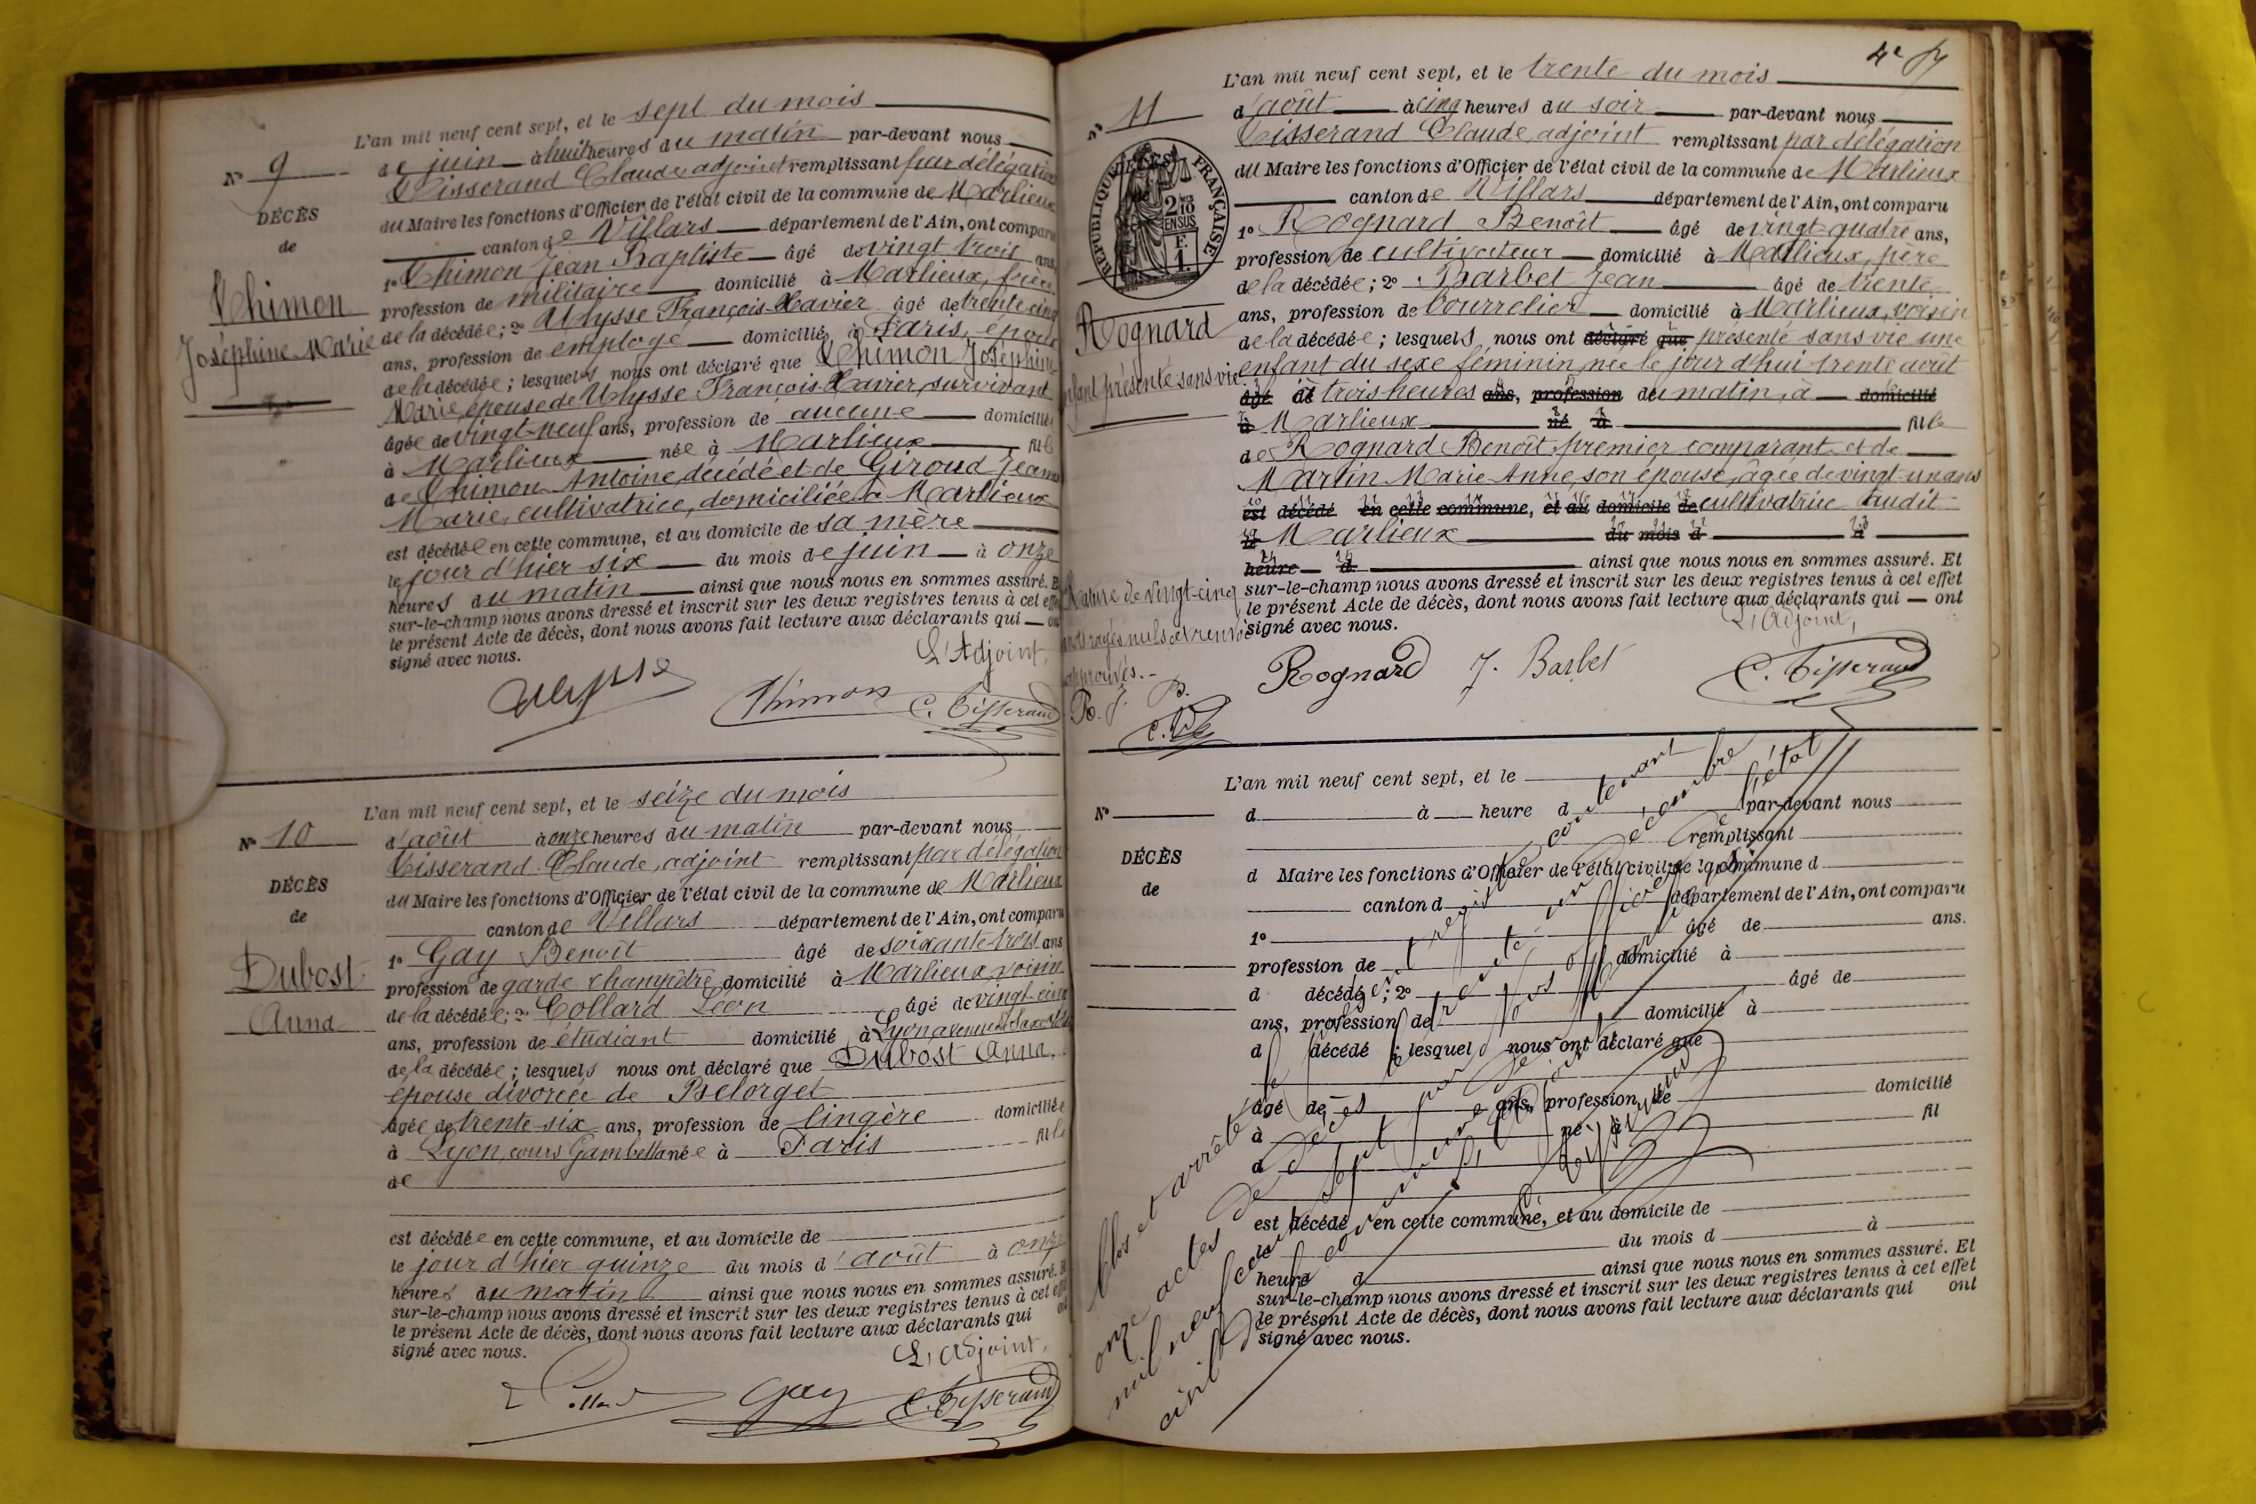 L'an mil neuf cent sept, et le sept du mois
de juin à huit heures du matin par-devant nous
Tisserand Claude adjoint remplissant par délégation
du Maire les fonctions d'Officier de l'état civil de la commune de Marlieux
canton de Villars département de l'Ain, ont comparu
1o Thimon Jean Baptiste âgé de vingt trois ans,
profession de militaire domicilié à Marlieux, frère
de la décédée ; 2o Ulysse François-Xavier âgé de trente cinq
ans, profession de employé domicilié à Paris, époux
de la décédée ; lesquels nous ont déclaré que Thimon Joséphine
Marie, épouse de Ulysse François-Xavier, survivant
âgée de vingt-neuf ans, profession de aucune domiciliée
à Marlieux née à Marlieux fille
de Thimon Antoine, décédé et de Giroud Jeanne
Marie, cultivatrice, domiciliée à Marlieux
est décédée en cette commune, et au domicile de sa mère
le jour d'hier six du mois de juin à onze
heures du matin ainsi que nous nous en sommes assuré. Et
sur-le-champ nous avons dressé et inscrit sur les deux registres tenus à cet effet
le présent Acte de décès, dont nous avons fait lecture aux déclarants qui — ont
signé avec nous.
L'Adjoint,
Ulysse Thimon C. Tisserand
No 9
DÉCÈS
de
Thimon
Joséphine Marie
L'an mil neuf cent sept, et le seize du mois
d'août à onze heures du matin par-devant nous
Tisserand Claude, adjoint remplissant par délégation
du Maire les fonctions d'Officier de l'état civil de la commune de Marlieux
canton de Villars département de l'Ain, ont comparu
1o Gay Benoît âgé de soixante trois ans
profession de garde champêtre domicilié à Marlieux, voisin
de la décédée ; 2o Collard Léon âgé de vingt-cinq
ans, profession de étudiant domicilié à Lyon, avenue
de la décédée ; lesquels nous ont déclaré que Dubost Anna,
épouse divorcée de Belorget
âgée de trente-six ans, profession de lingère domiciliée
à Lyon, cours Gambetta née à Paris fille
de
est décédée en cette commune, et au domicile de
le jour d'hier quinze du mois d'août à onze
heures du matin ainsi que nous nous en sommes assuré. Et
sur-le-champ nous avons dressé et inscrit sur les deux registres tenus à cet effet
le présent Acte de décès, dont nous avons fait lecture aux déclarants qui ont
signé avec nous.
L'Adjoint,
Gay C. Tisserand
No 10
DÉCÈS
de
Dubost
Anna
4e
L'an mil neuf cent sept, et le trente du mois
d'août à cinq heures du soir par-devant nous
Tisserand Claude, adjoint remplissant par délégation
du Maire les fonctions d'Officier de l'état civil de la commune de Marlieux
canton de Villars département de l'Ain, ont comparu
1o Rognard Benoît âgé de vingt-quatre ans,
profession de cultivateur domicilié à Marlieux, père
de la décédée ; 2o Barbet Jean âgé de trente
ans, profession de bourrelier domicilié à Marlieux, voisin
de la décédée ; lesquels nous ont déclaré que présenté sans vie une
enfant du sexe féminin, née le jour d'hui trente août
âgé de à trois heures ans, profession de du matin, à domicilié
à Marlieux né à fille
de Rognard Benoît, premier comparant et de
Martin Marie Anne, son épouse, âgée de vingt-un ans
est décédé en cette commune, et au domicile de cultivatrice audit
le Marlieux du mois d à
heure d ainsi que nous nous en sommes assuré. Et
sur-le-champ nous avons dressé et inscrit sur les deux registres tenus à cet effet
le présent Acte de décès, dont nous avons fait lecture aux déclarants qui — ont
signé avec nous.
L'Adjoint,
Rognard J. Barbet C. Tisserand
No 11
RÉPUBLIQUE FRANÇAISE
2 10
EN SUS
F.
1.
Rognard
enfant présenté sans vie
Rature de vingt-cinq
mots rayés nuls et renvoi
approuvés.
R. J. B.
C. T.
L'an mil neuf cent sept, et le
d à heure d par-devant nous
remplissant
d Maire les fonctions d'Officier de l'état civil de la commune d
canton d département de l'Ain, ont comparu
1o âgé de ans.
profession de domicilié à
d décédé ; 2o âgé de
ans, profession de domicilié à
d décédé ; lesquel nous ont déclaré que
âgé de ans, profession de domicilié
à né à fil
d
est décédé en cette commune, et au domicile de
le du mois d à
heure d ainsi que nous nous en sommes assuré. Et
sur-le-champ nous avons dressé et inscrit sur les deux registres tenus à cet effet
le présent Acte de décès, dont nous avons fait lecture aux déclarants qui ont
signé avec nous.
No
DÉCÈS
de
Clos et arrêté le présent registre contenant
onze actes de décès, le trente un décembre
mil neuf cent sept par nous officier de l'état
civil de la commune de Marlieux
C. Tisserand